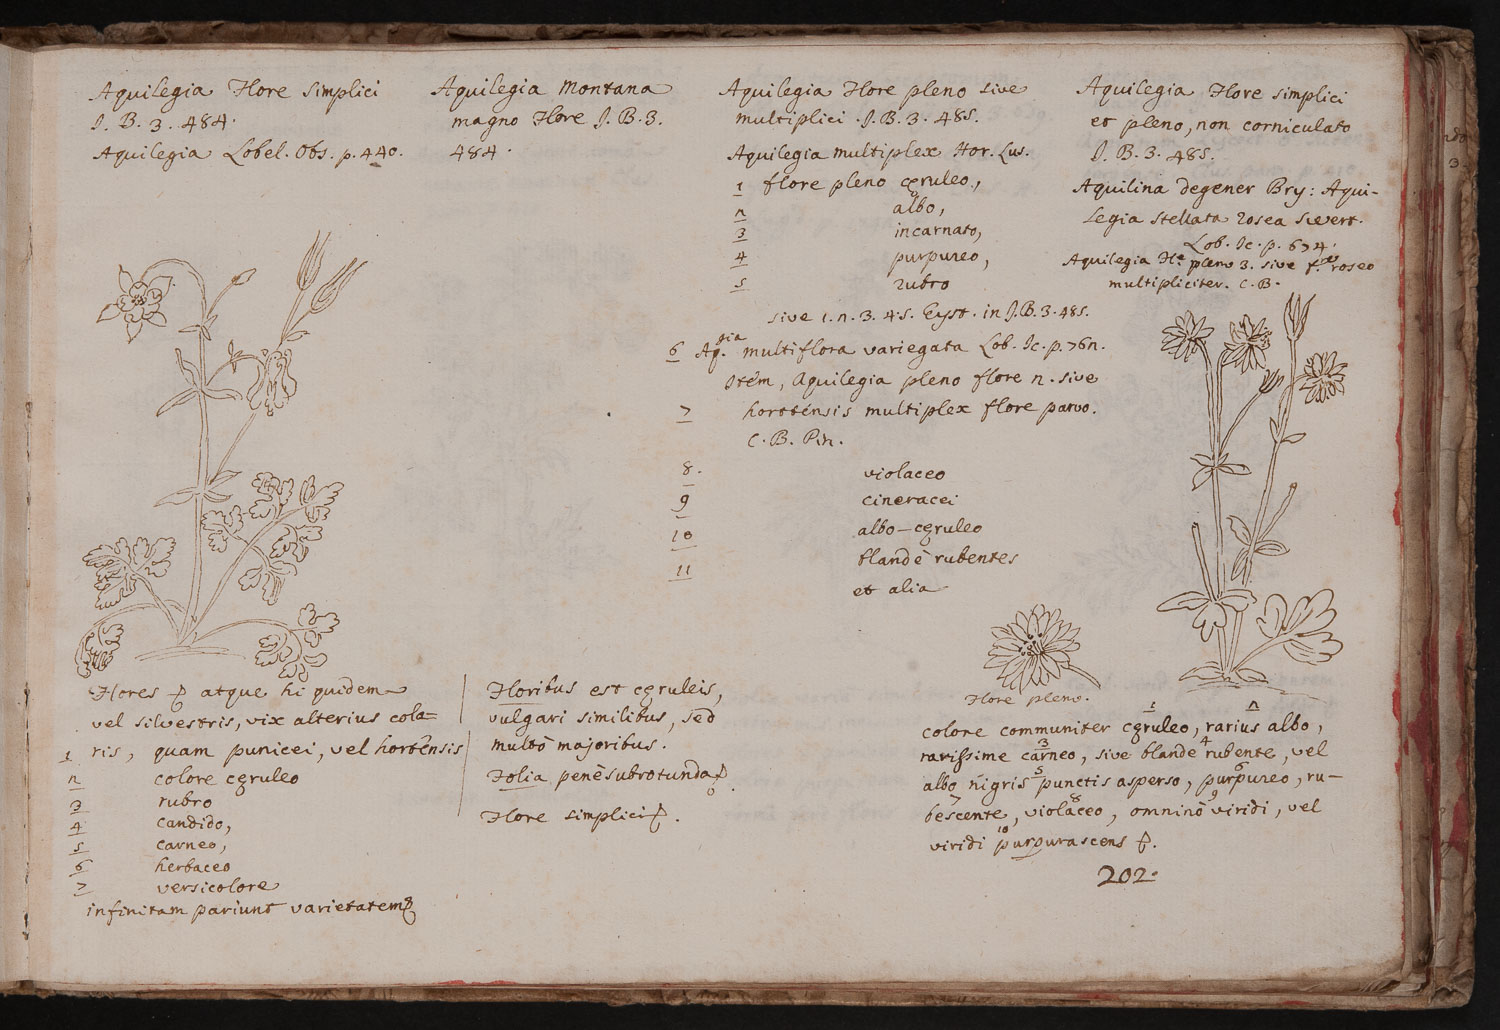 Aquilegia Flore simplici
J. B. 3. 484.
Aquilegia Lobel. Obs. p. 440.
Flores atque hi quidem
vel silvestris, vix alterius colo=
1 ris, quam punicei, vel hortensis
2 colore cęruleo
3 rubro
4 candido,
5 carneo,
6 herbaceo
7 versicolore
infinitam pariunt varietatem
Aquilegia montana
magno Flore J. B. 3.
484.
Floribus est cęruleis,
vulgari similibus, sed
multò majoribus.
Folia penè subrotunda
Flore simplici
Aquilegia Flore pleno sive
multiplici. J. B. 3. 485.
Aquilegia multiplex Hor. Lus.
1 flore pleno cęruleo,
2 albo,
3 incarnato,
4 purpureo,
5 rubro
sive 1. 2. 3. 4. 5. Eyst. in J. B. 3. 485.
6 Aq.gia multiflora variegata Lob. Ic. p. 762.
Item, Aquilegia pleno flore 2. sive
7 hortensis multiplex flore parvo.
C. B. Pin.
8. violaceo
9 cineracei
10 albo-cęruleo
11 blandè rubentes
et alia
Aquilegia Flore simplici
et pleno, non corniculato
J. B. 3. 485.
Aquilina degener Bry: Aqui-
legia stellata rosea Swert.
Lob. Ic. p. 674.
Aquilegia Fl.e pleno 3. sive f. roseo
multipliciter. C. B.
Flore pleno.
1 2
colore communiter cęruleo, rarius albo,
3 4
rarissime carneo, sive blande rubente, vel
5 6
albo nigris punctis asperso, purpureo, ru-
7 8 9
bescente, violaceo, omninò viridi, vel
10
viridi purpurascens
202.